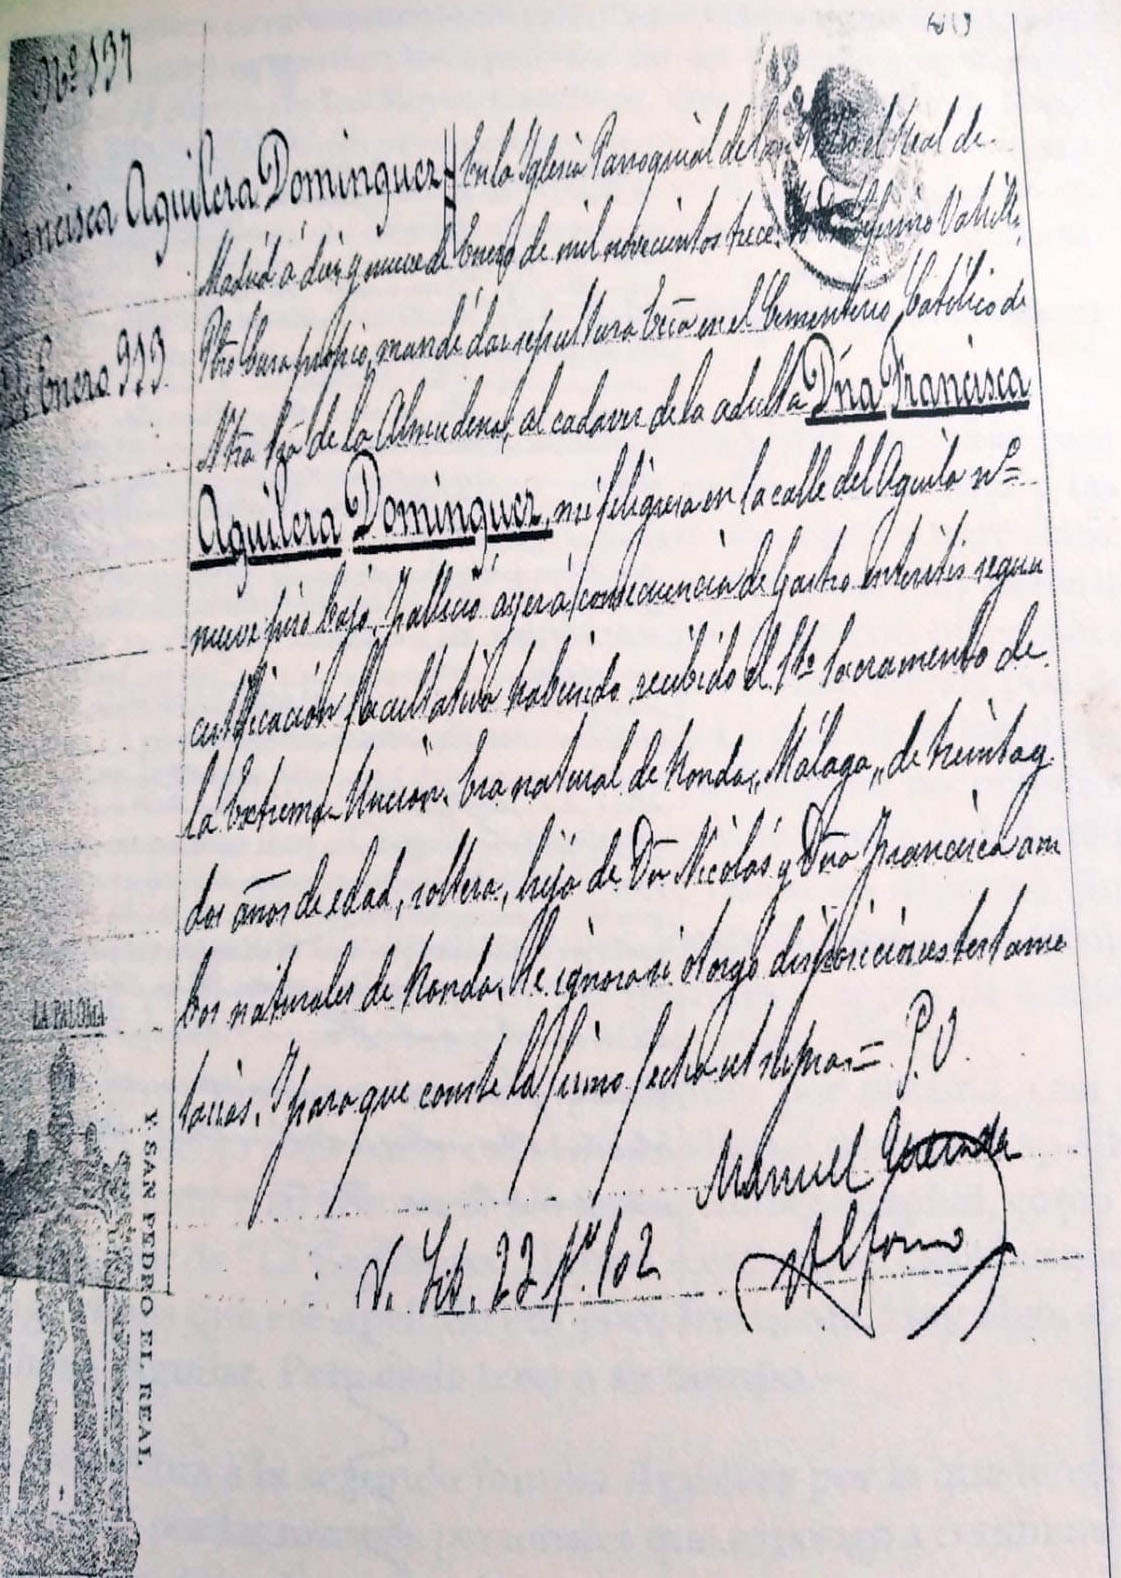 Nº 137
Francisca Aguilera Dominguez
Enero 913
En la Iglesia Parroquial de la y el Real de
Madrid á diez y nueve de Enero de mil novecientos trece. Yo
Pbro Cura propio, mandé dar sepultura Ecca en el Cementerio Católico de
Ntra Sra de la Almudena, al cadaver de la adulta Dña Francisca
Aguilera Dominguez, mi feligresa en la calle del Aguila nº
nueve piso bajo. Falleció ayer á consecuencia de Gastro enteritis segun
certificación facultativa habiendo recibido el Sto Sacramento de
la Extrema-Unción. Era natural de Ronda, Málaga, de treinta y
dos años de edad, soltera, hija de Dn Nicolás y Dña Francisca am
bos naturales de Ronda. Se ignora si otorgó disposiciones testame
tarias. Y para que conste la firmo fecha ut supra.= P.O
Manuel
Alfonso
V. Lib. 22 fº 102
LA PALOMA
Y SAN PEDRO EL REAL